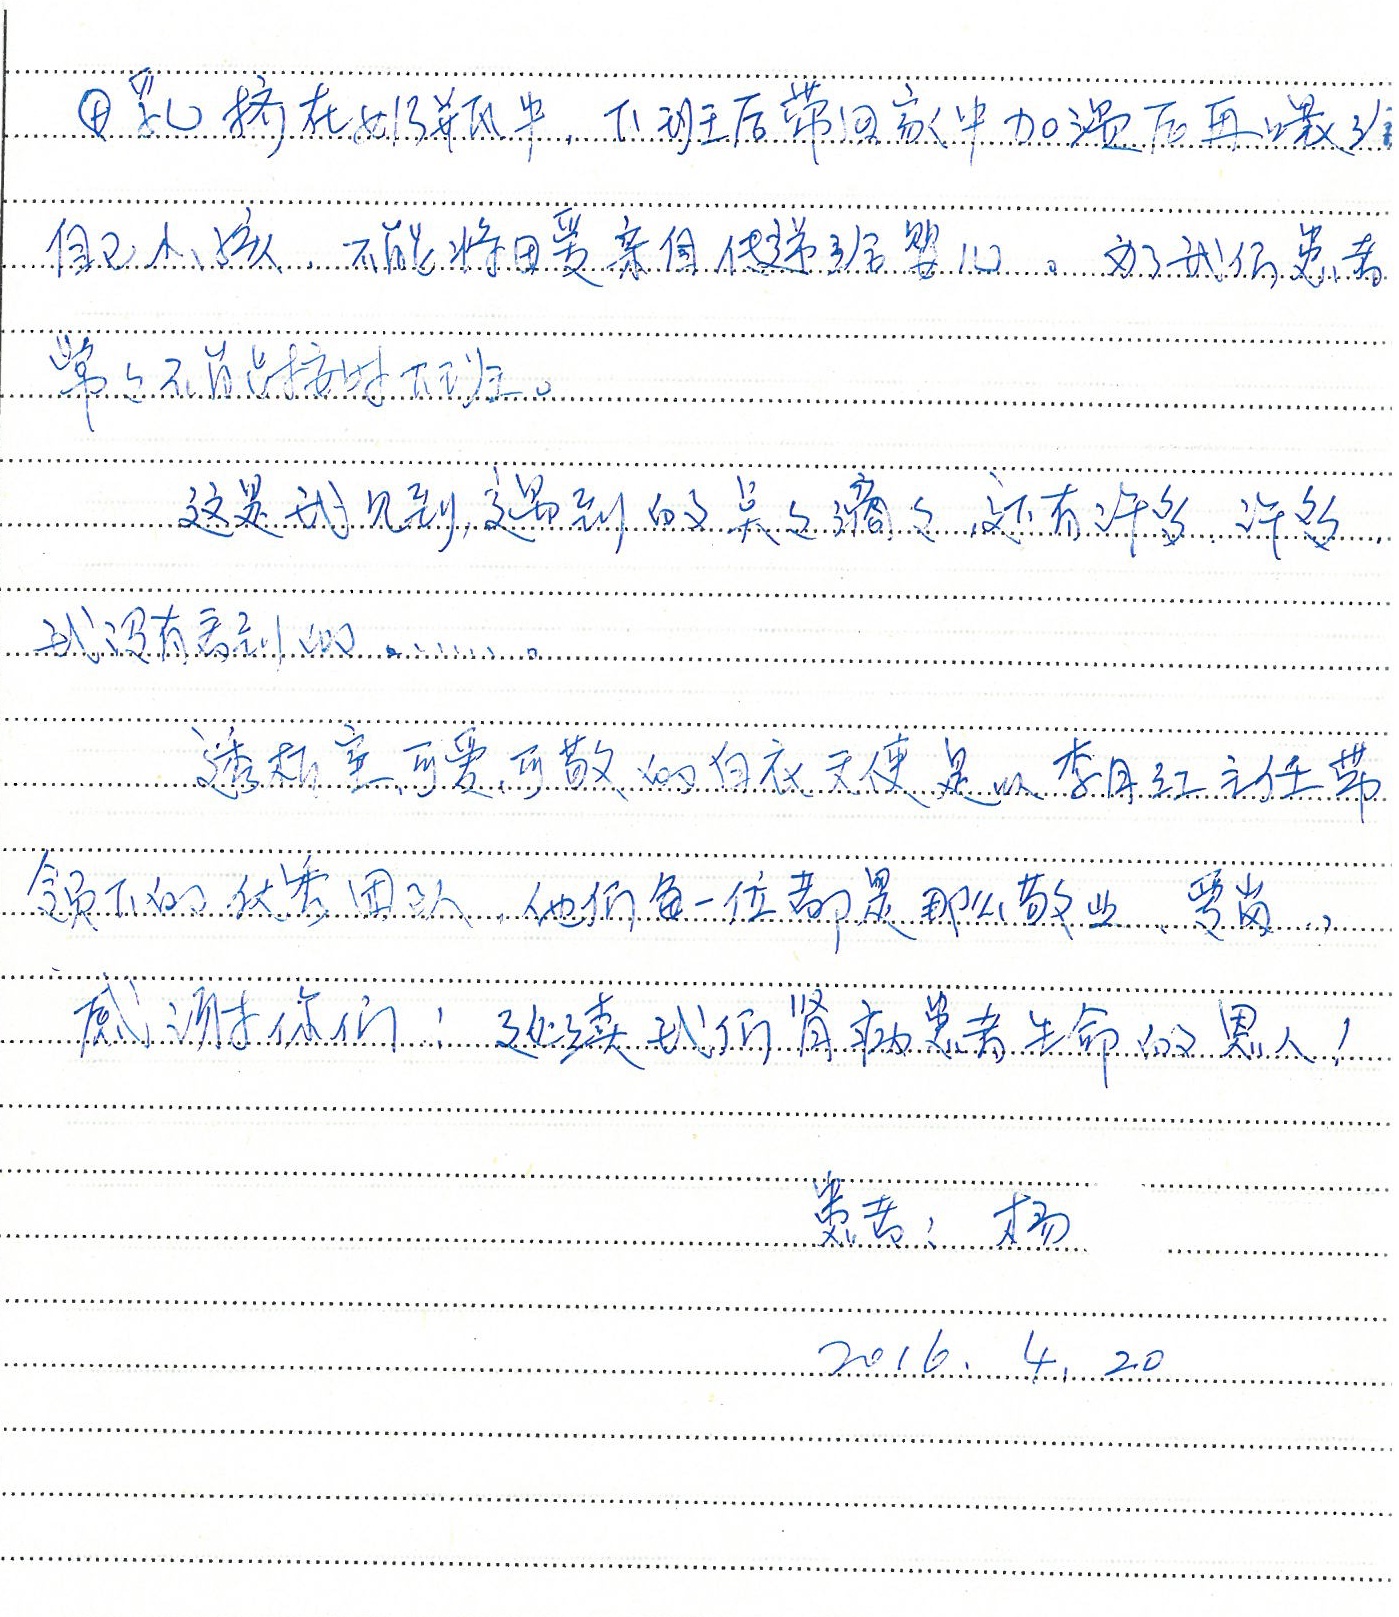 母乳挤在奶瓶中，下班后带回家中加温后再喂给
自己小孩，不能将母爱亲自传递给婴儿。为了我们患者
常々不能按时下班。
这是我见到,遇到的点々滴々,还有许多,许多,
我没有看到的.......。
透析室,可爱,可敬的白衣天使是以李月红主任带
领下的优秀团队,他们每一位都是那么敬业、爱岗..,
感谢你们！延续我们肾病患者生命的恩人！
患者：杨
2016.4.20